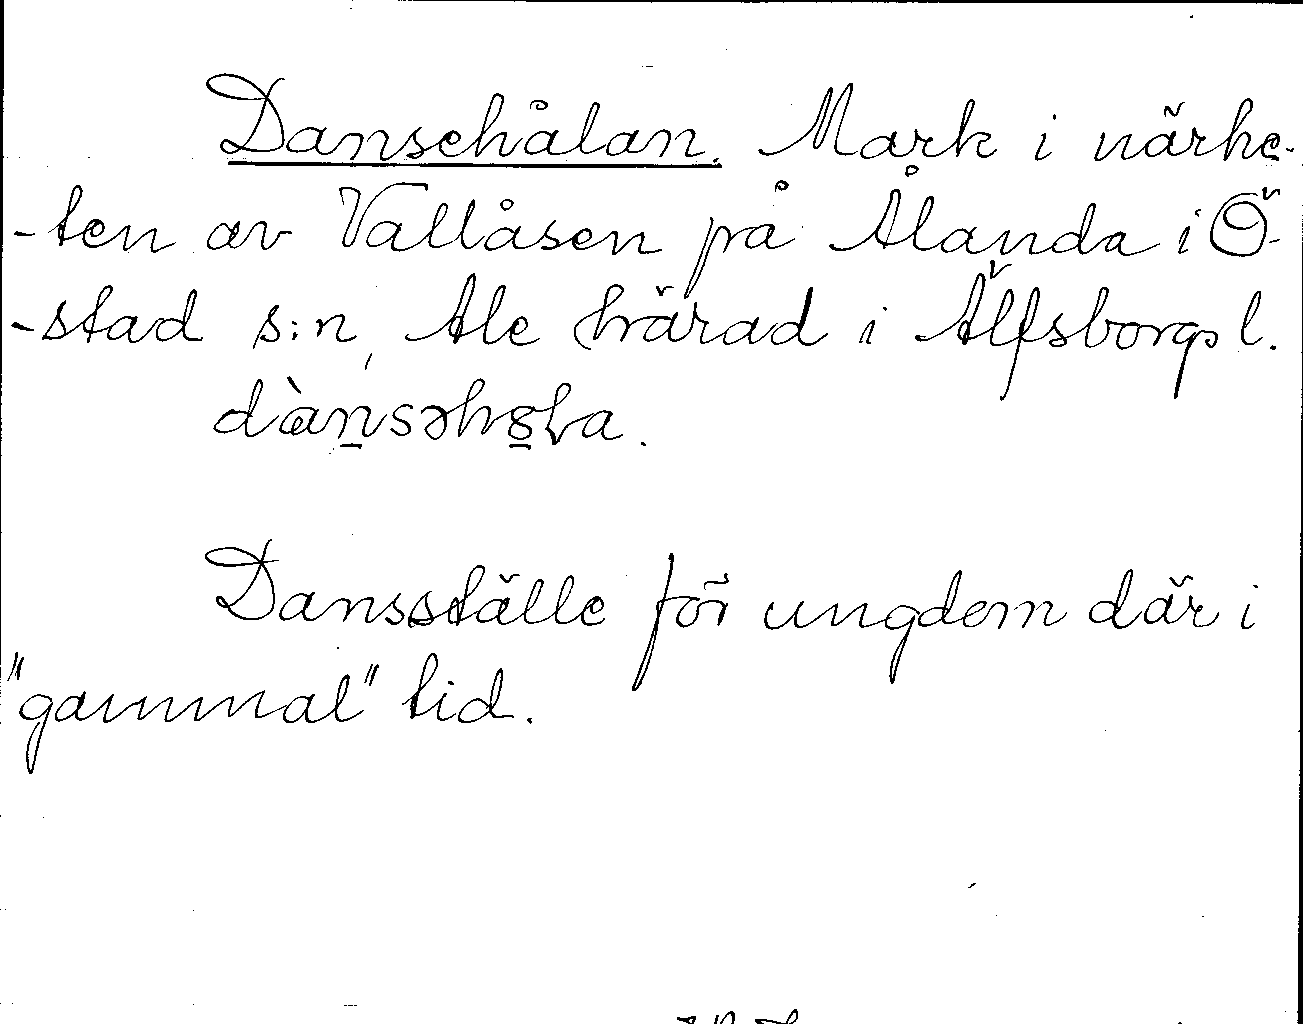 Dansehålan. Mark i närhe-
-ten av Vallåsen på Ålanda i Ö-
-stad s:n, Ale härad i Älfsborgs l.
Dansställe för ungdom där i
"gammal" tid.